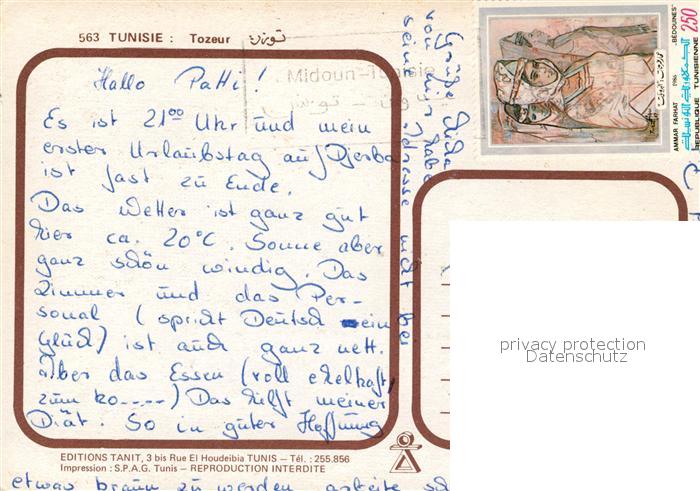 563 TUNISIE : Tozeur توزر
Midoun-Tunisie
Hallo Patti!
Es ist 21⁰⁰ Uhr und mein
erster Urlaubstag auf Djerba
ist fast zu Ende.
Das Wetter ist ganz gut
hier ca. 20°C. Sonne aber
ganz schön windig. Das
Zimmer und das Per-
sonal (spricht Deutsch ein
Glück) ist auch ganz nett.
Aber das Essen (voll ekelhaft,
zum ko----) Das hilft meiner
Diät. So in guter Hoffnung
etwas braun zu werden arbeite
Grüße
von habe
Adresse nicht bei
AMMAR FARHAT 1986 "BÉDOUINES"
RÉPUBLIQUE TUNISIENNE
250
EDITIONS TANIT, 3 bis Rue El Houdeibia TUNIS – Tél. : 255.856
Impression : S.P.A.G. Tunis – REPRODUCTION INTERDITE
privacy protection
Datenschutz